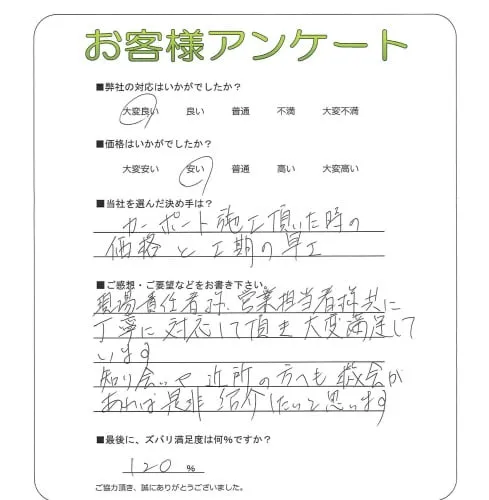 お客様アンケート
■弊社の対応はいかがでしたか？
大変良い 良い 普通 不満 大変不満
■価格はいかがでしたか？
大変安い 安い 普通 高い 大変高い
■当社を選んだ決め手は？
カーポート施工頂いた時の
価格と工期の早工
■ご感想・ご要望などをお書き下さい。
現場責任者様、営業担当者様共に
丁寧に対応して頂き大変満足して
います
知り合いや近所の方へも機会が
あれば是非紹介したいと思います
■最後に、ズバリ満足度は何％ですか？
120 %
ご協力頂き、誠にありがとうございました。